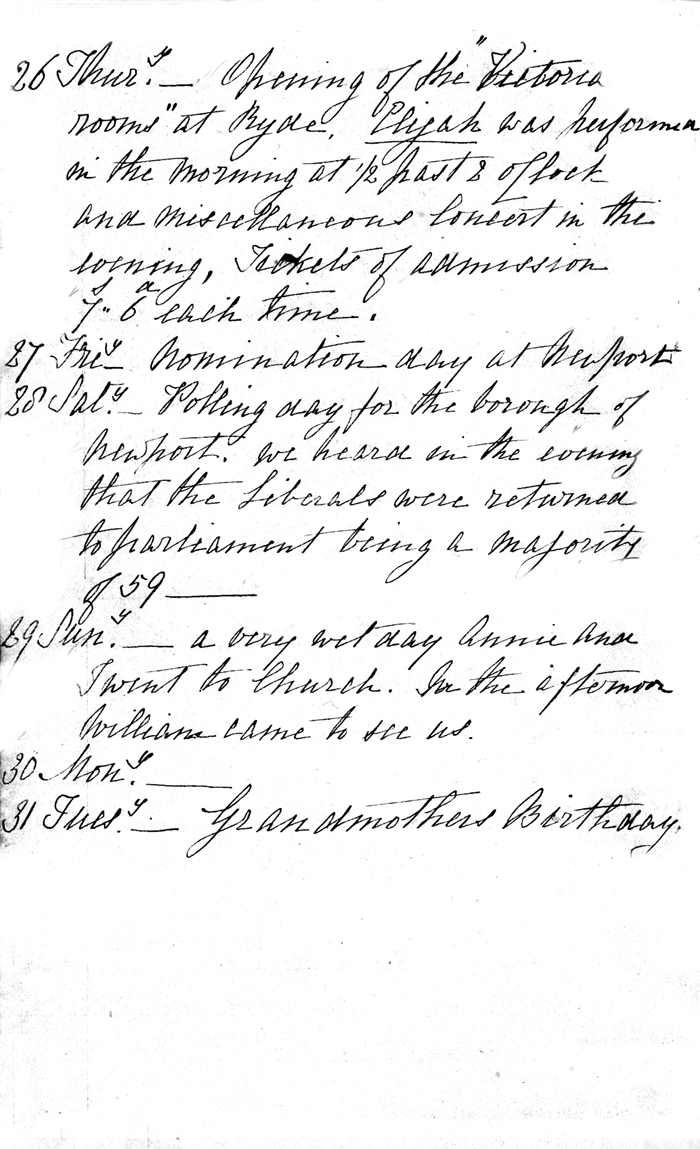 26 Thurʸ. — Opening of the "Victoria
rooms" at Ryde. Elijah was performed
in the morning at ½ past 2 oflock
and miscellaneous Concert in the
evening, Tickets of admission
7ˢ" 6ᵈ each time.
27 Friʸ — Nomination day at Newport
28 Satʸ. — Polling day for the borough of
Newport. we heard in the evening
that the Liberals were returned
to parliament being a majority
of 59 ——
29 Sunʸ. — a very wet day Annie and
I went to Church. In the afternoon
William came to see us.
30 Monʸ. ——
31 Tuesʸ. — Grandmothers Birthday.